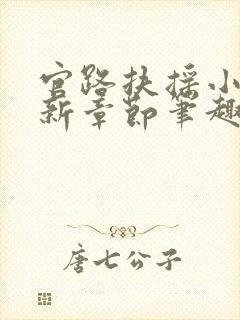 官路扶摇小
新章节笔趣
唐七公子